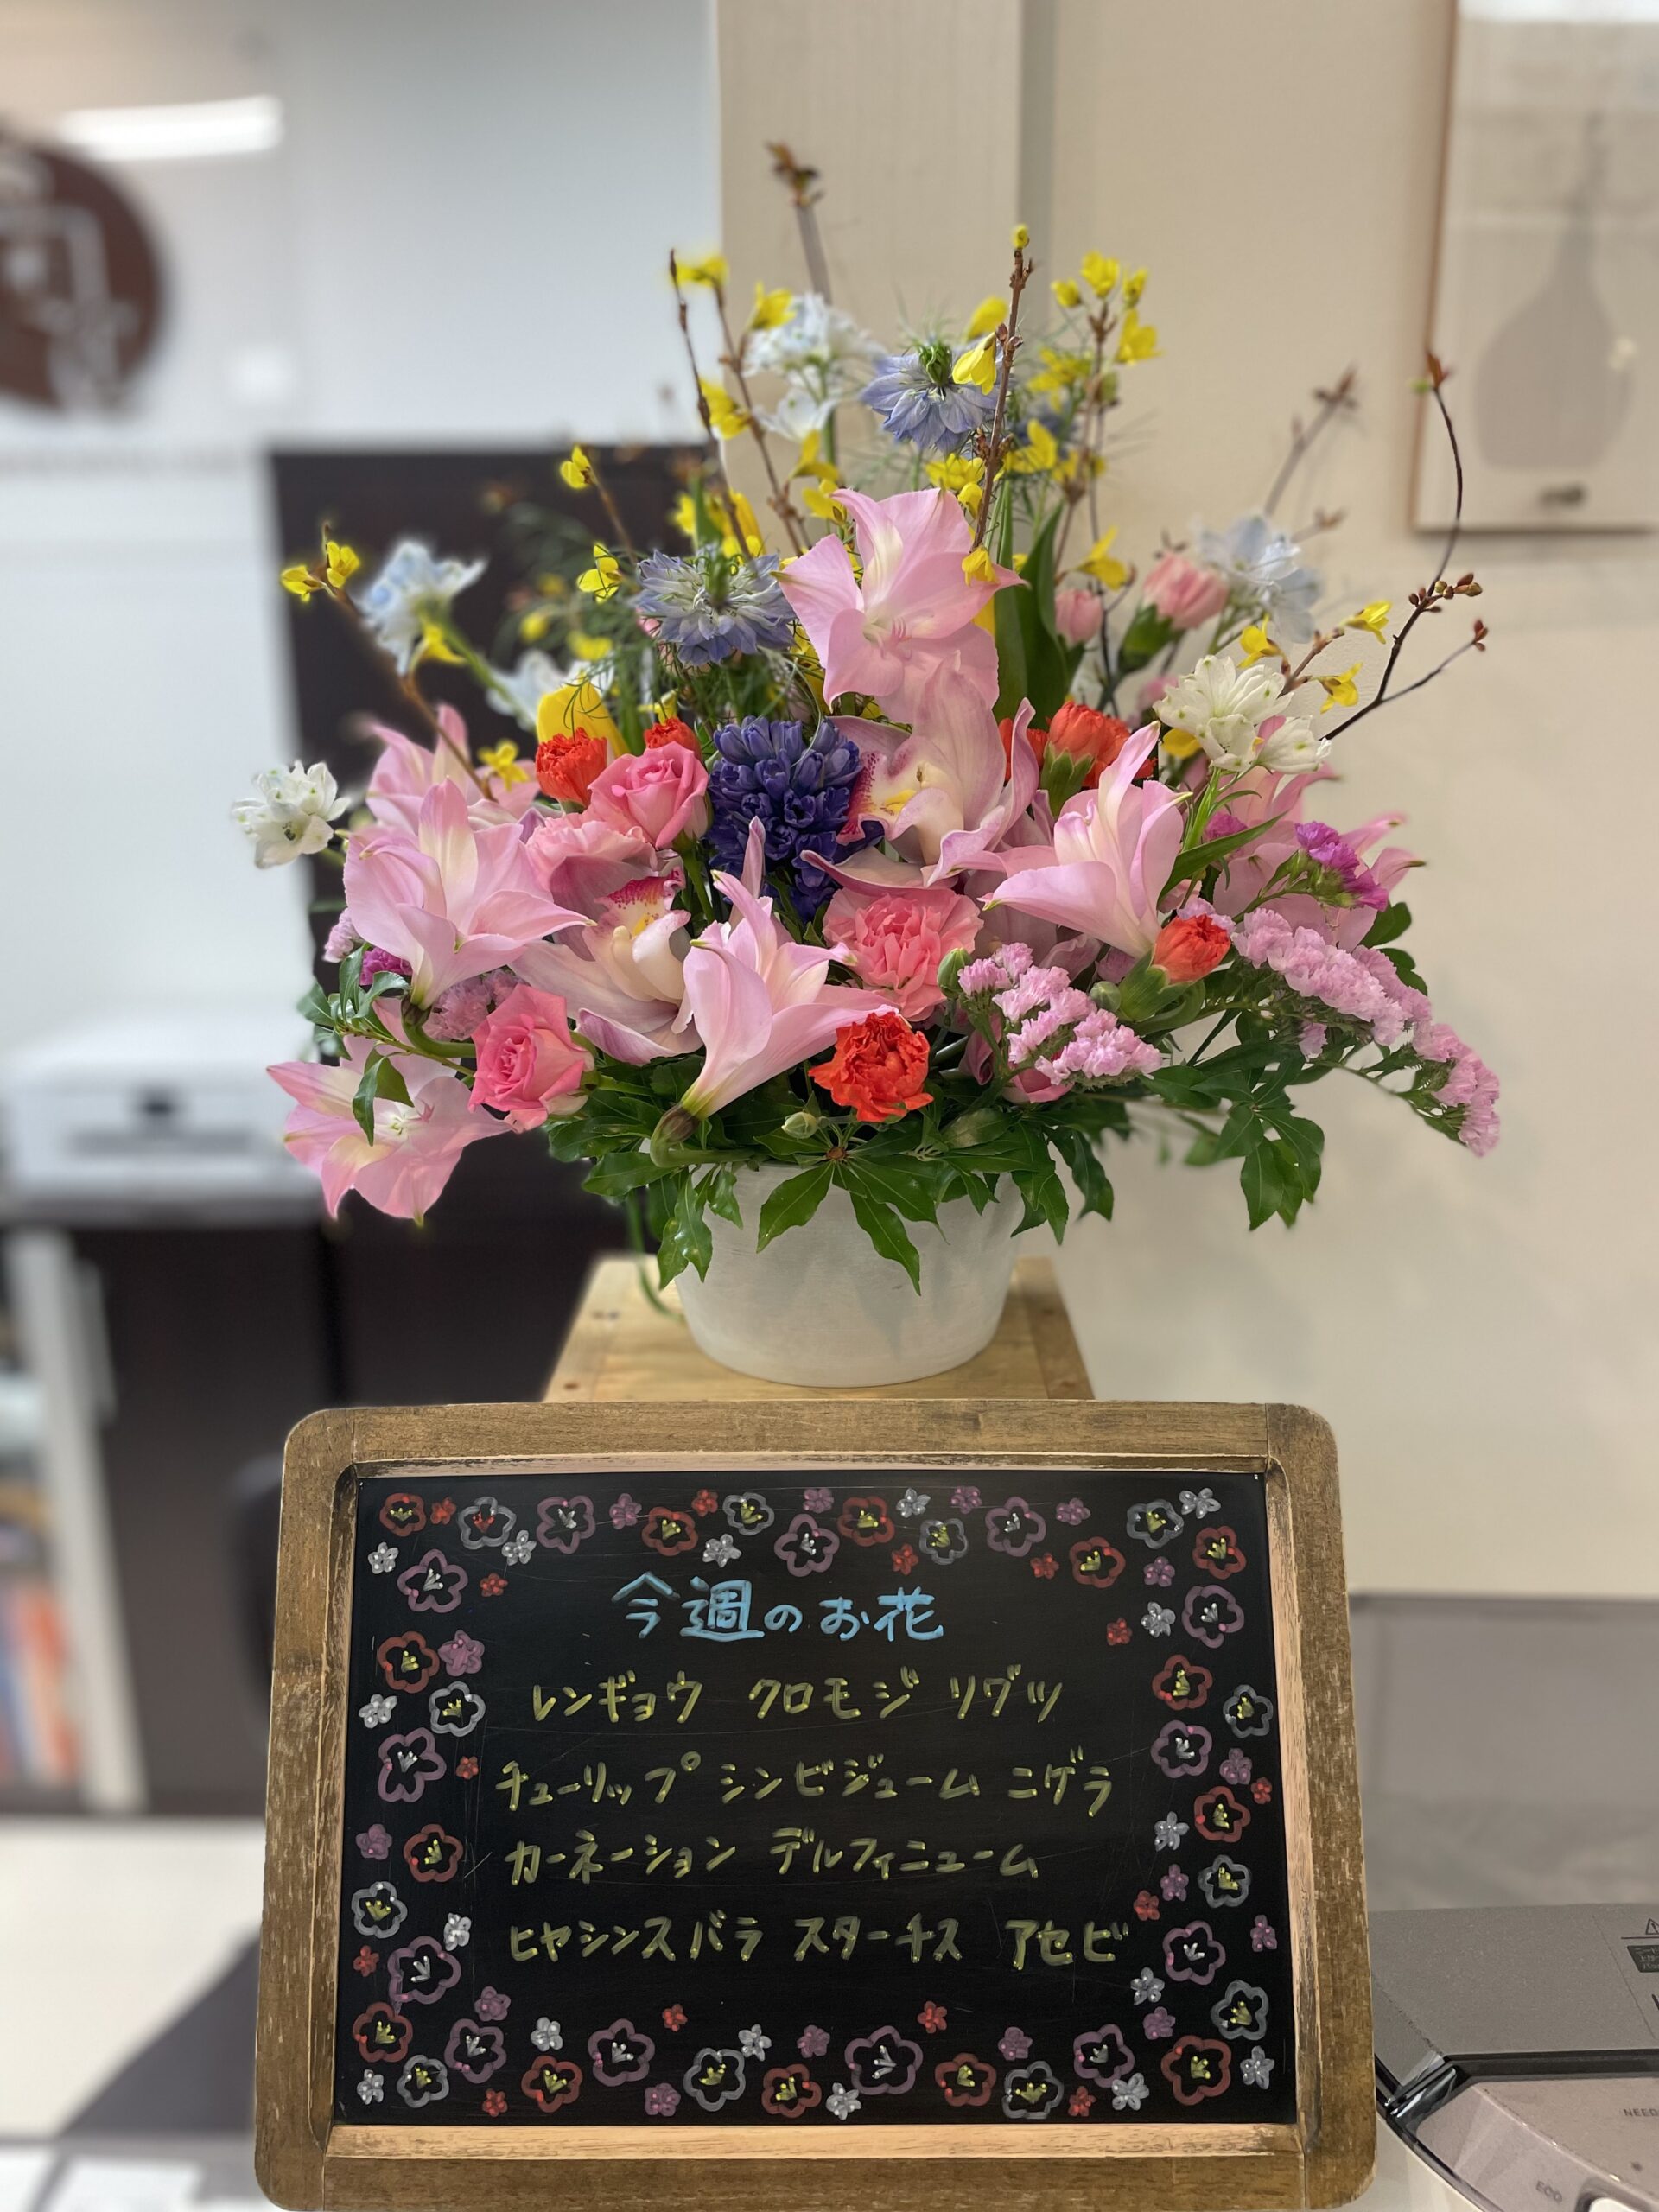 今週のお花
レンギョウ クロモジ リグツ
チューリップ シンビジューム ニゲラ
カーネーション デルフィニューム
ヒヤシンス バラ スターチス アセビ
ECO